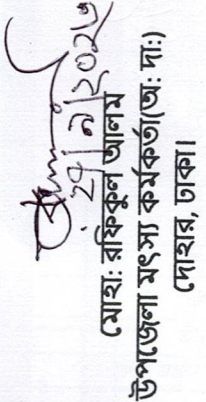 ২৭/৭/২০২৩
মোহা: রফিকুল আলম
উপজেলা মৎস্য কর্মকর্তা(অ: দা:)
দোহার, ঢাকা।